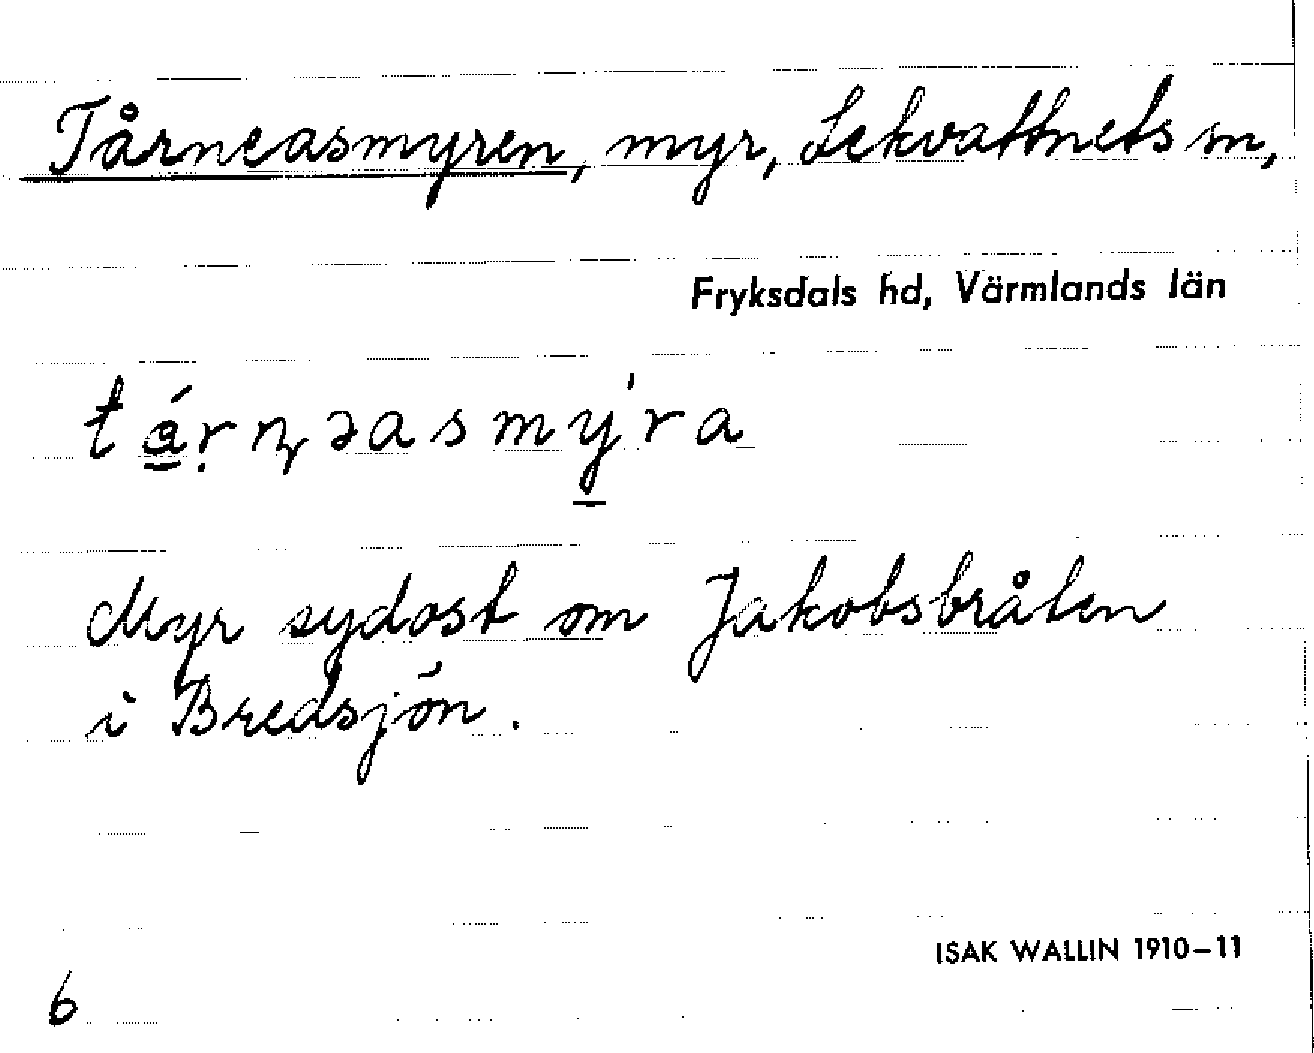 Tårneasmyren, myr, Lekvattnets sn,
Fryksdals hd, Värmlands län
Myr sydost om Jakobsbråten
i Bredsjön.
ISAK WALLIN 1910–11
6